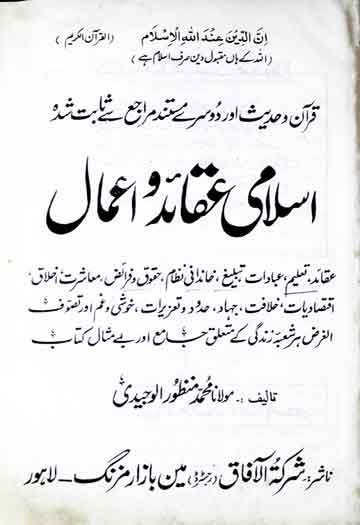 اِنَّ الدِّیْنَ عِنْدَ اللّٰہِ الْاِسْلَام (القرآن الکریم)
(اللہ کے ہاں مقبول دین صرف اسلام ہے)
قرآن و حدیث اور دُوسرے مستند مراجع سے ثابت شدہ
اسلامی عقائد و اعمال
عقائد، تعلیم، عبادات، تبلیغ، خاندانی نظام، حقوق و فرائض، معاشرت، اخلاق،
اقتصادیات، خلافت، جہاد، حدود و تعزیرات، خوشی و غم اور تصوّف
الغرض ہر شعبۂ زندگی کے متعلق جامع اور بے مثال کتاب
تالیف :۔ مولانا محمد منظور الوجیدی
ناشر:۔ شرکۃ الآفاق (رجسٹرڈ) مین بازار مزنگ ۔ لاہور